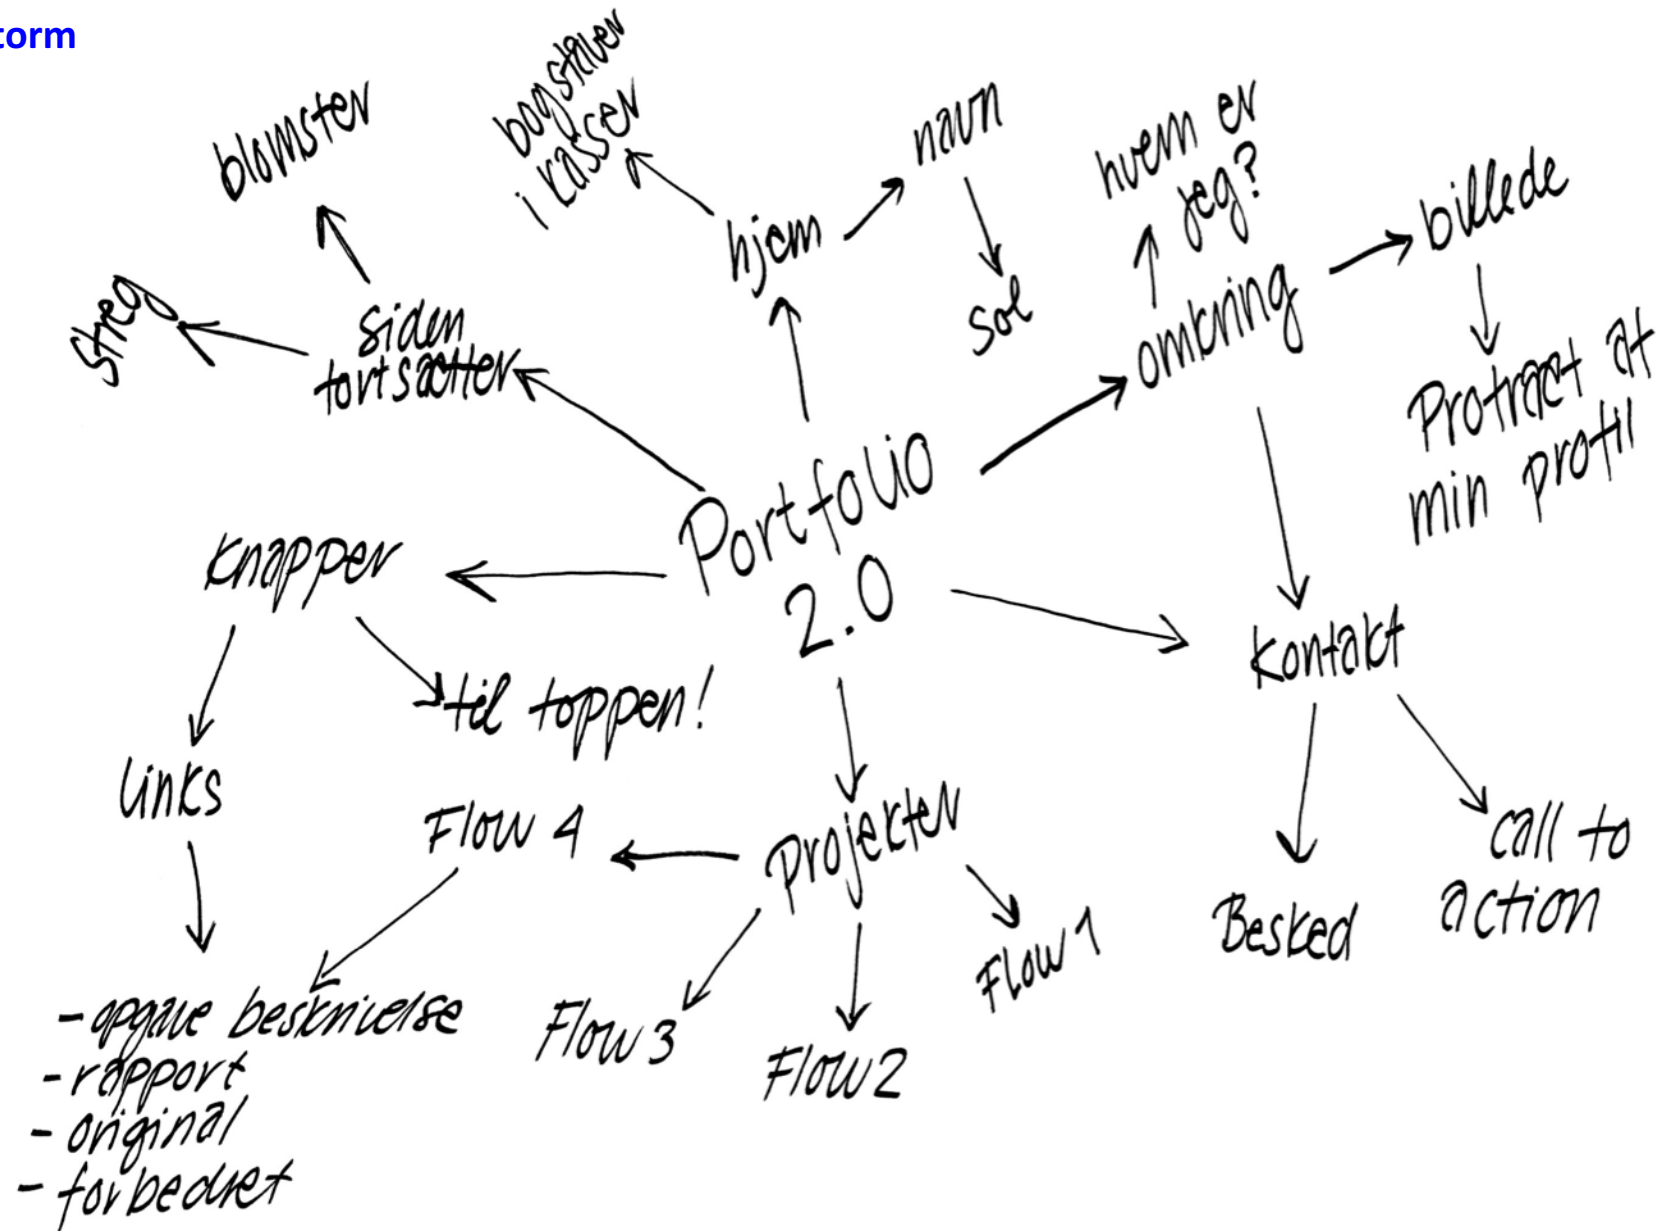 torm
blomster
bogstaver
i kasser
navn
hvem er
jeg?
billede
hjem
sol
omkring
streg
siden
fortsætter
Protræt af
min profil
Portfolio
2.0
Knapper
Kontakt
til toppen!
links
Flow 4
Projekter
call to
action
Besked
Flow 1
Flow 3
Flow 2
- opgave beskrivelse
- rapport
- original
- forbedret